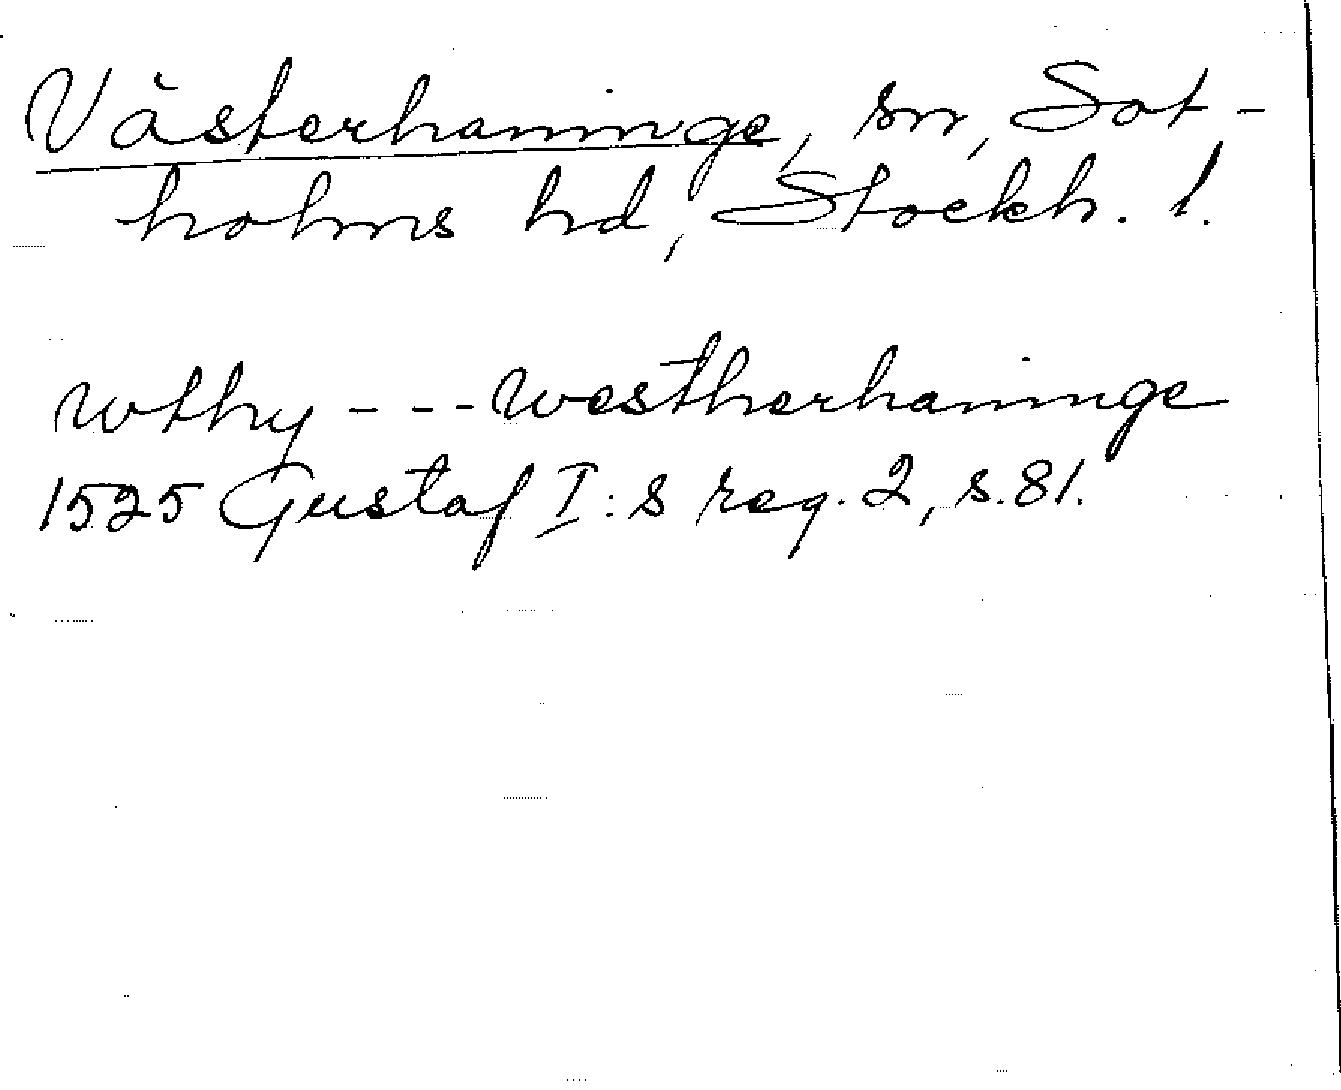 Västerhaninge, sn, Sot-
holms hd, Stockh. l.
wthy - - - westherhaninge
1525 Gustaf I:s reg. 2, s. 81.